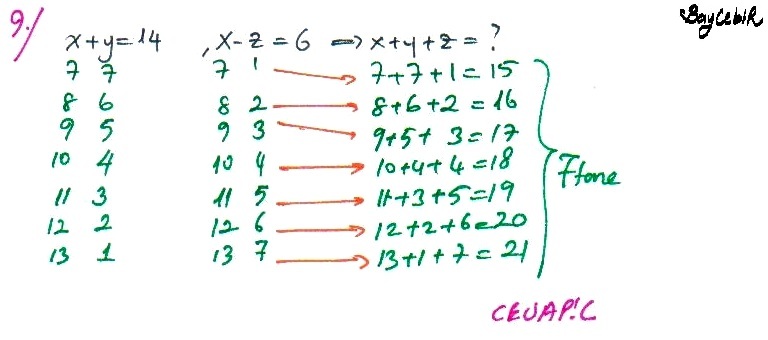 BayCebiR
9./
x+y=14 , x-z=6 ⇒ x+y+z=?
7 7 7 1 → 7+7+1=15
8 6 8 2 → 8+6+2=16
9 5 9 3 → 9+5+3=17
10 4 10 4 → 10+4+4=18
11 3 11 5 → 11+3+5=19
12 2 12 6 → 12+2+6=20
13 1 13 7 → 13+1+7=21
7 tane
CEVAP:C